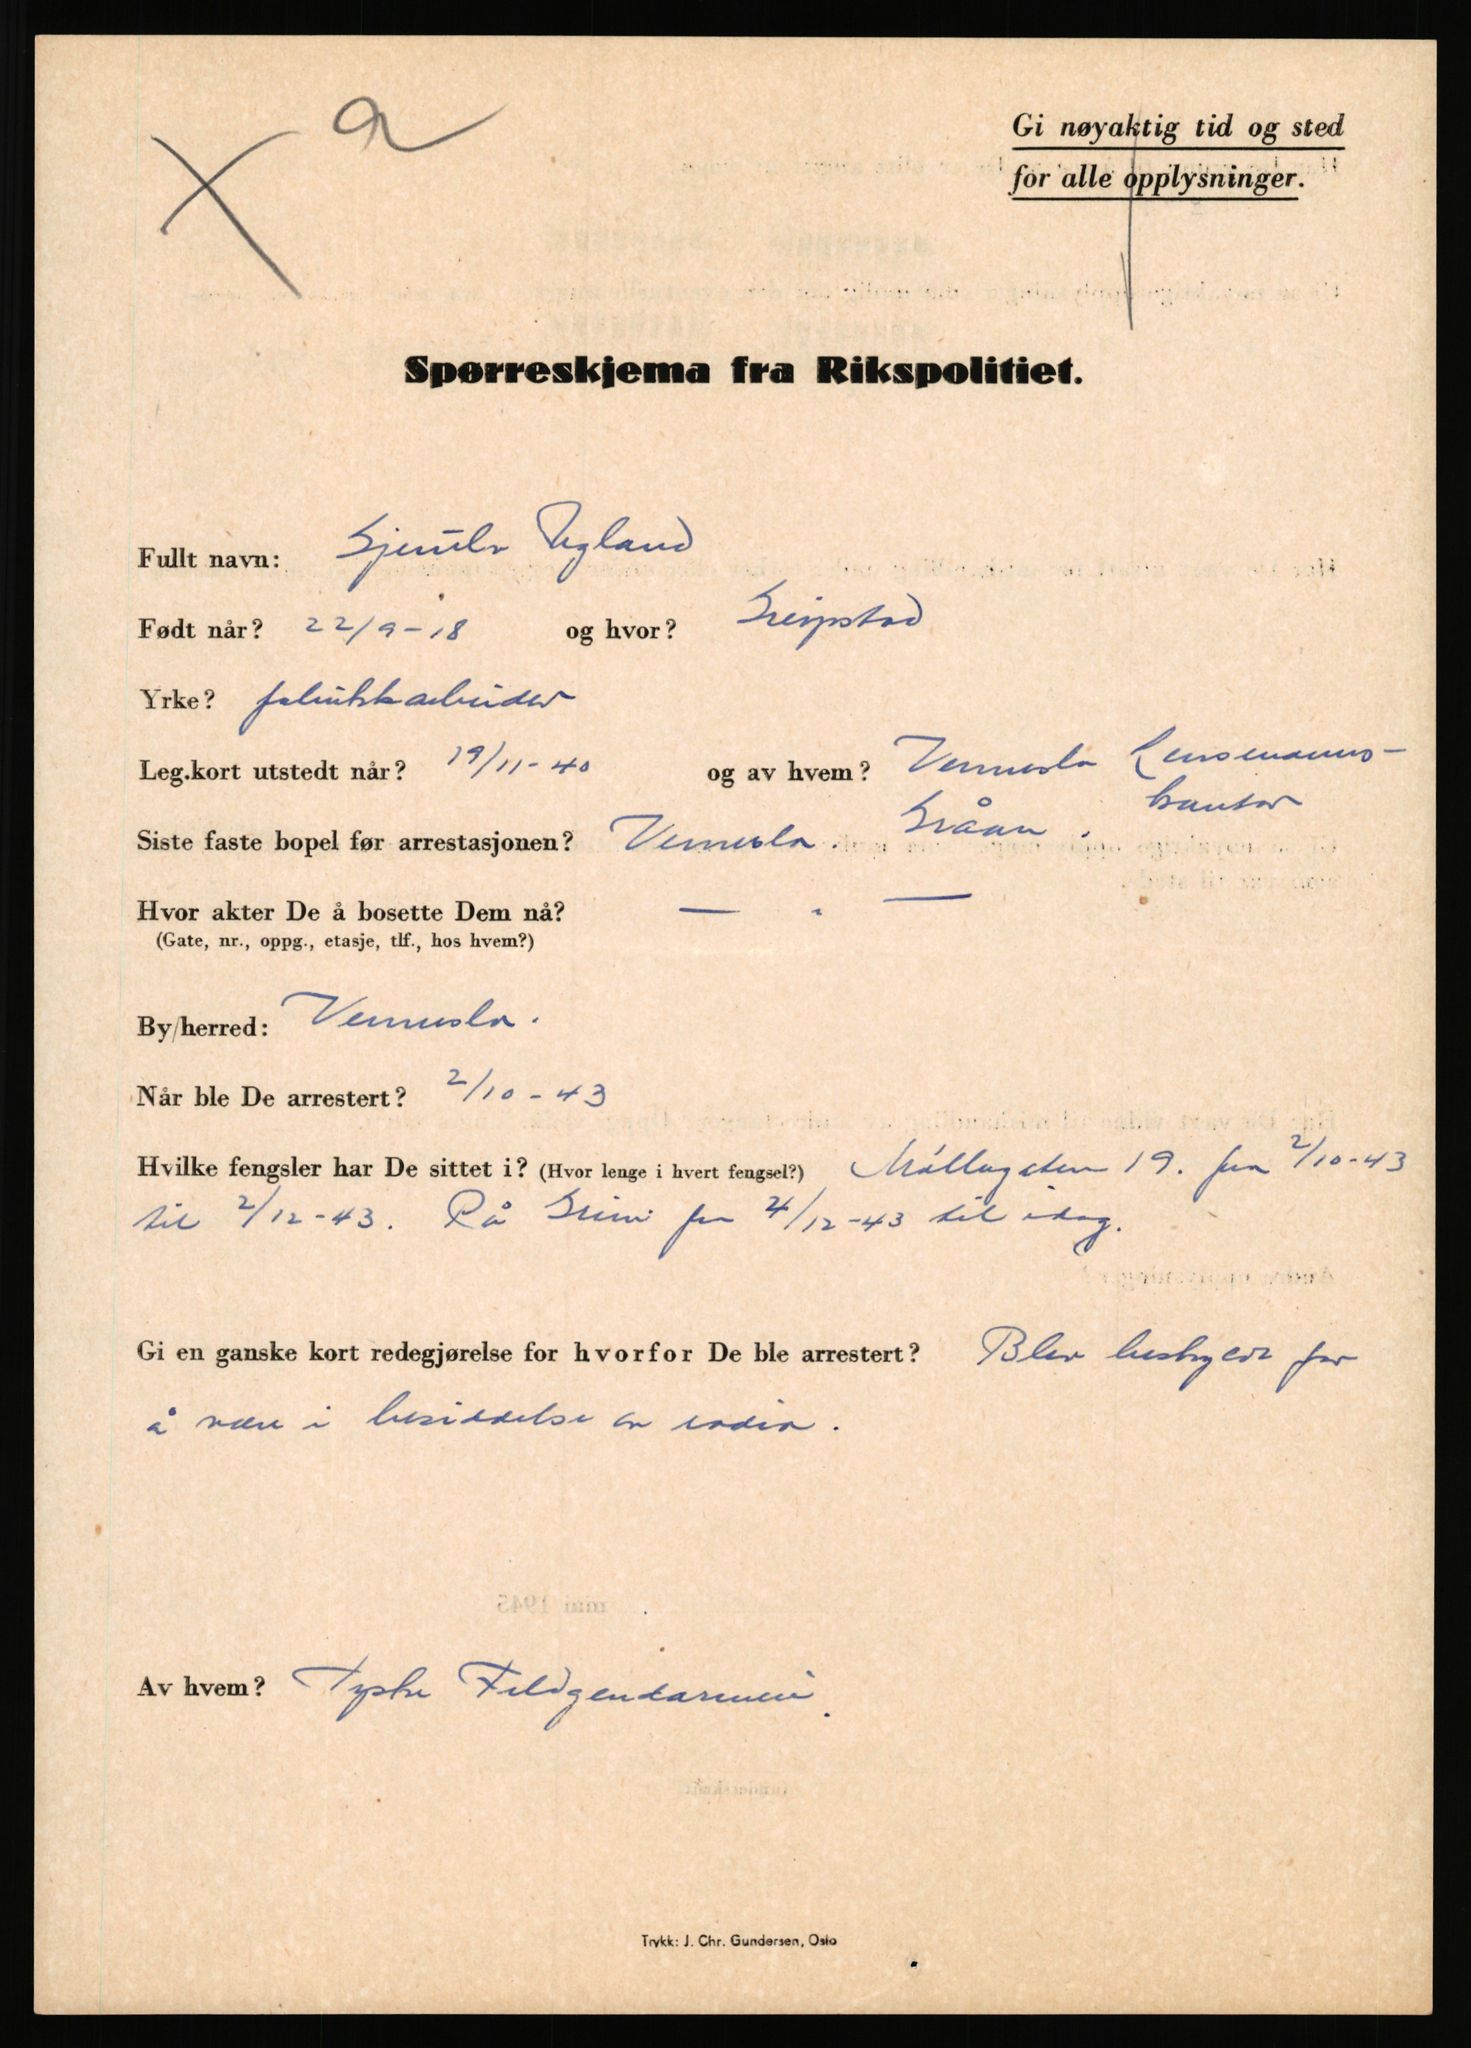 a
Gi nøyaktig tid og sted
for alle opplysninger.
Spørreskjema fra Rikspolitiet.
Fullt navn: Ugland
Født når? 22/9-18 og hvor? Greipstad
Yrke? fabrikkarbeider
Leg.kort utstedt når? 19/11-40 og av hvem? Vennesla Lensmanns-
kontor
Siste faste bopel før arrestasjonen? Vennesla. Gråan.
Hvor akter De å bosette Dem nå? — " —
(Gate, nr., oppg., etasje, tlf., hos hvem?)
By/herred: Vennesla.
Når ble De arrestert? 2/10-43
Hvilke fengsler har De sittet i? (Hvor lenge i hvert fengsel?) Møllergaten 19. fra 2/10-43
til 2/12-43. På Grini fra 2/12-43 til idag.
Gi en ganske kort redegjørelse for hvorfor De ble arrestert? Blev beskyldt for
å være i besiddelse av radio.
mai 1945
Av hvem? Tyske Feldgendarmeri.
Trykk: J. Chr. Gundersen, Oslo